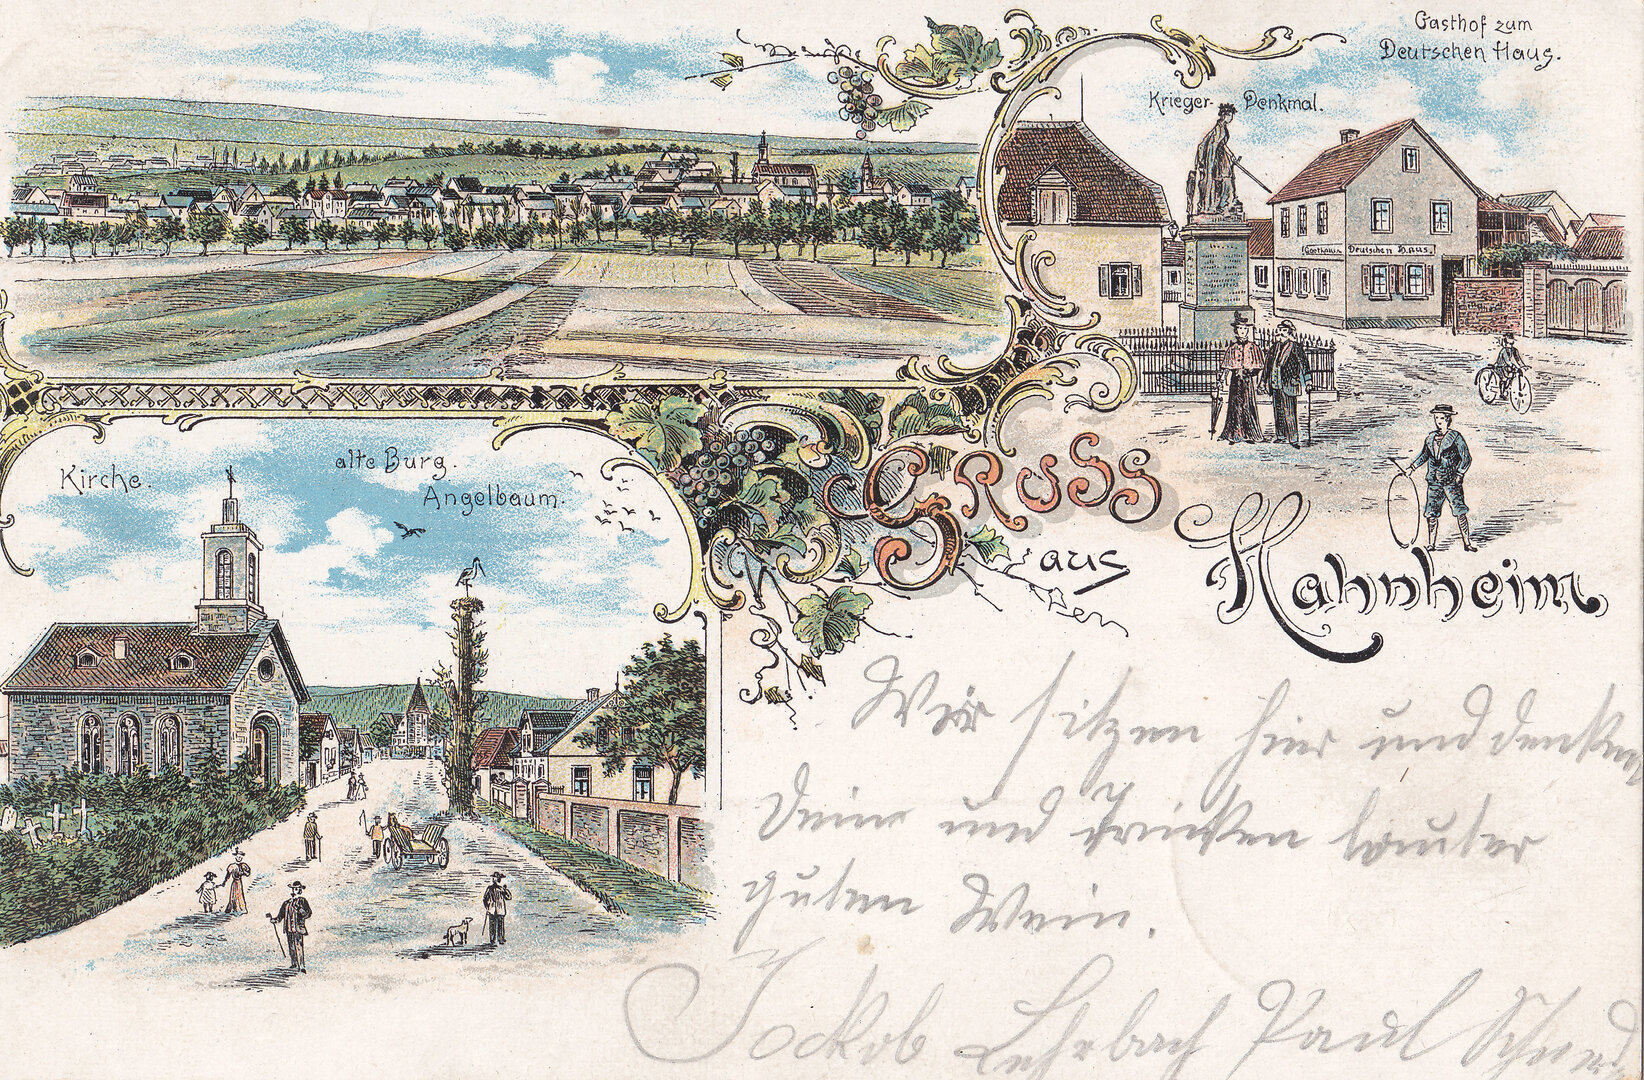 Gasthof zum
Deutschen Haus.
Krieger-Denkmal.
Gasthaus Deutschen Haus.
Kirche.
alte Burg.
Angelbaum.
Gruss
aus
Hahnheim
Wir sitzen hier und denken
Deine und trinken lauter
guten Wein.
Jockob Lehrbach Paul